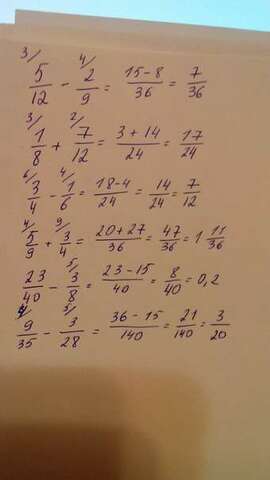 3/ 5/12 - 4/ 2/9 = 15-8/36 = 7/36
3/ 1/8 + 2/ 7/12 = 3+14/24 = 17/24
6/ 3/4 - 4/ 1/6 = 18-4/24 = 14/24 = 7/12
4/ 5/9 + 9/ 3/4 = 20+27/36 = 47/36 = 1 11/36
23/40 - 5/ 3/8 = 23-15/40 = 8/40 = 0,2
4/ 9/35 - 5/ 3/28 = 36-15/140 = 21/140 = 3/20